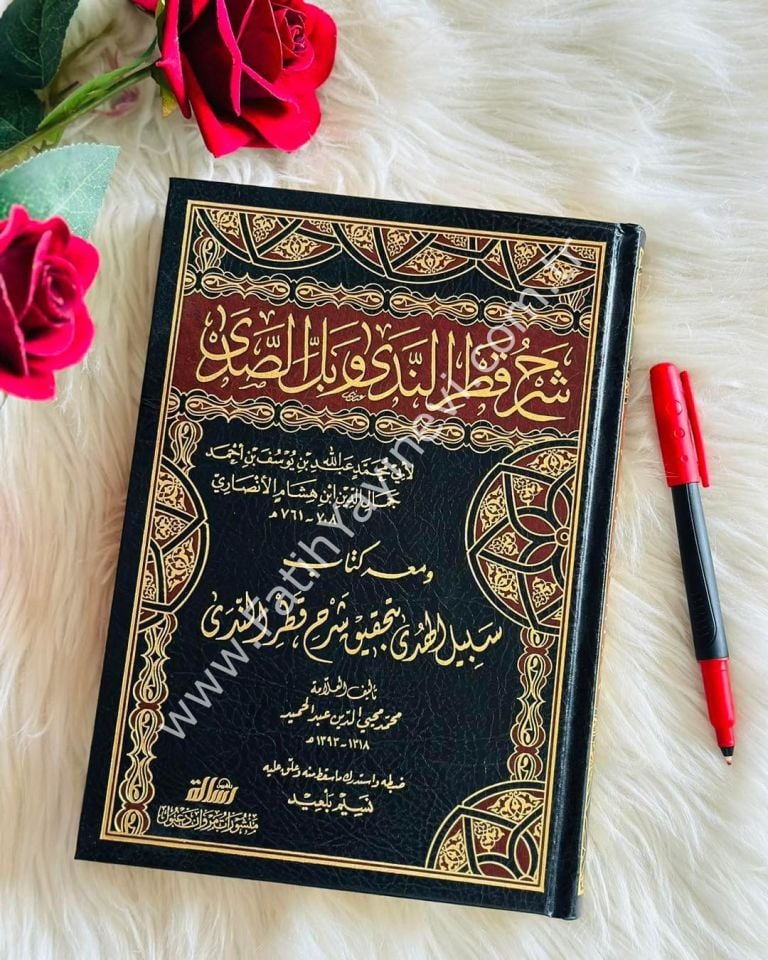 شرح قطر الندى وبل الصدى
لأبي محمد عبد الله بن يوسف بن أحمد
جمال الدين ابن هشام الأنصاري
٧٠٨ - ٧٦١ هـ
ومعه كتاب
سبيل الهدى بتحقيق شرح قطر الندى
تأليف العلامة
محمد محيي الدين عبد الحميد
١٣١٨ - ١٣٩٣ هـ
ضبطه واستدرك ما سقط منه وعلق عليه
نسيم بلعيد
رسالة
ناشرون
منشورات مروان دعبول
www.FatihYayinevi.com.tr